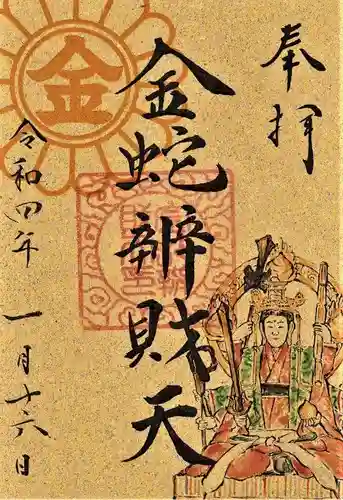 奉拝
金蛇辨財天
令和四年一月十六日
金